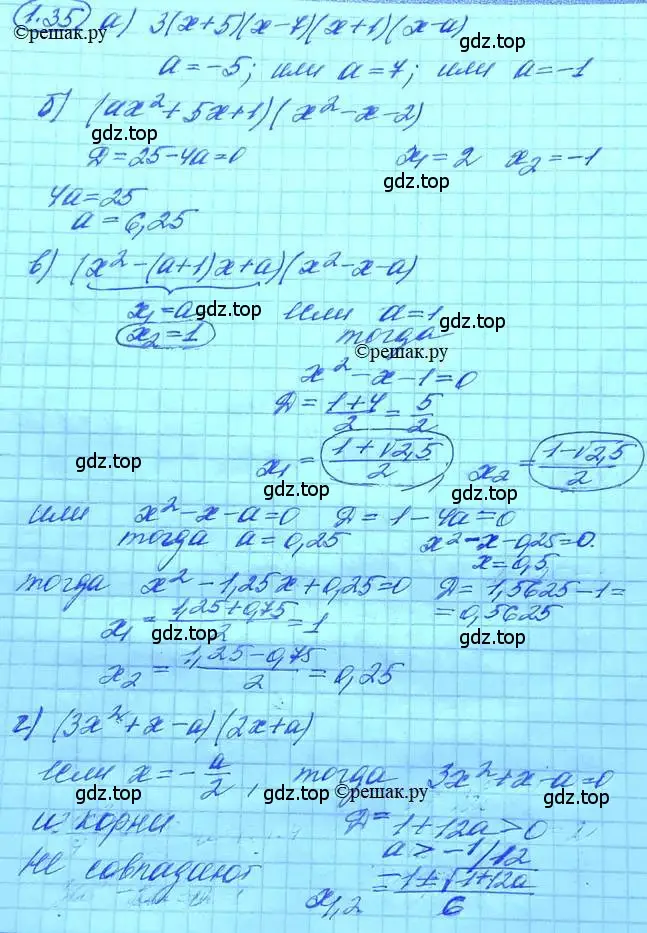 1.35 а) 3(x+5)(x-7)(x+1)(x-a)
©решак.ру
gdz.top
a = -5; или a = 7; или a = -1
б) (ax² + 5x + 1)(x² - x - 2)
gdz.top
D = 25 - 4a = 0   x₁ = 2   x₂ = -1
gdz.top
4a = 25
a = 6,25
gdz.top
в) (x² - (a+1)x + a)(x² - x - a)
x₁ = a   если a = 1
gdz.top gdz.top
x₂ = 1   тогда
©решак.ру
x² - x - 1 = 0
D = \frac{1+4}{2} = \frac{5}{2}
gdz.top
x₁ = \frac{1+√2,5}{2}, x₂ = \frac{1-√2,5}{2}
gdz.top gdz.top
или x² - x - a = 0   D = 1 - 4a = 0
тогда a = 0,25   x² - x - 0,25 = 0.
gdz.top
x = 0,5
тогда x² - 1,25x + 0,25 = 0   D = 1,5625 - 1 =
x₁ = \frac{1,25+0,75}{2} = 1   = 0,5625
gdz.top gdz.top
x₂ = \frac{1,25-0,75}{2} = 0,25
gdz.top
г) (3x² + x - a)(2x + a)
gdz.top
если x = -\frac{a}{2}, тогда 3x² + x - a = 0
gdz.top ©решак.ру gdz.top
и корни   D = 1 + 12a > 0
не совпадают   a > -1/12
gdz.top gdz.top
x₁,₂ = \frac{-1±√1+12a}{6}